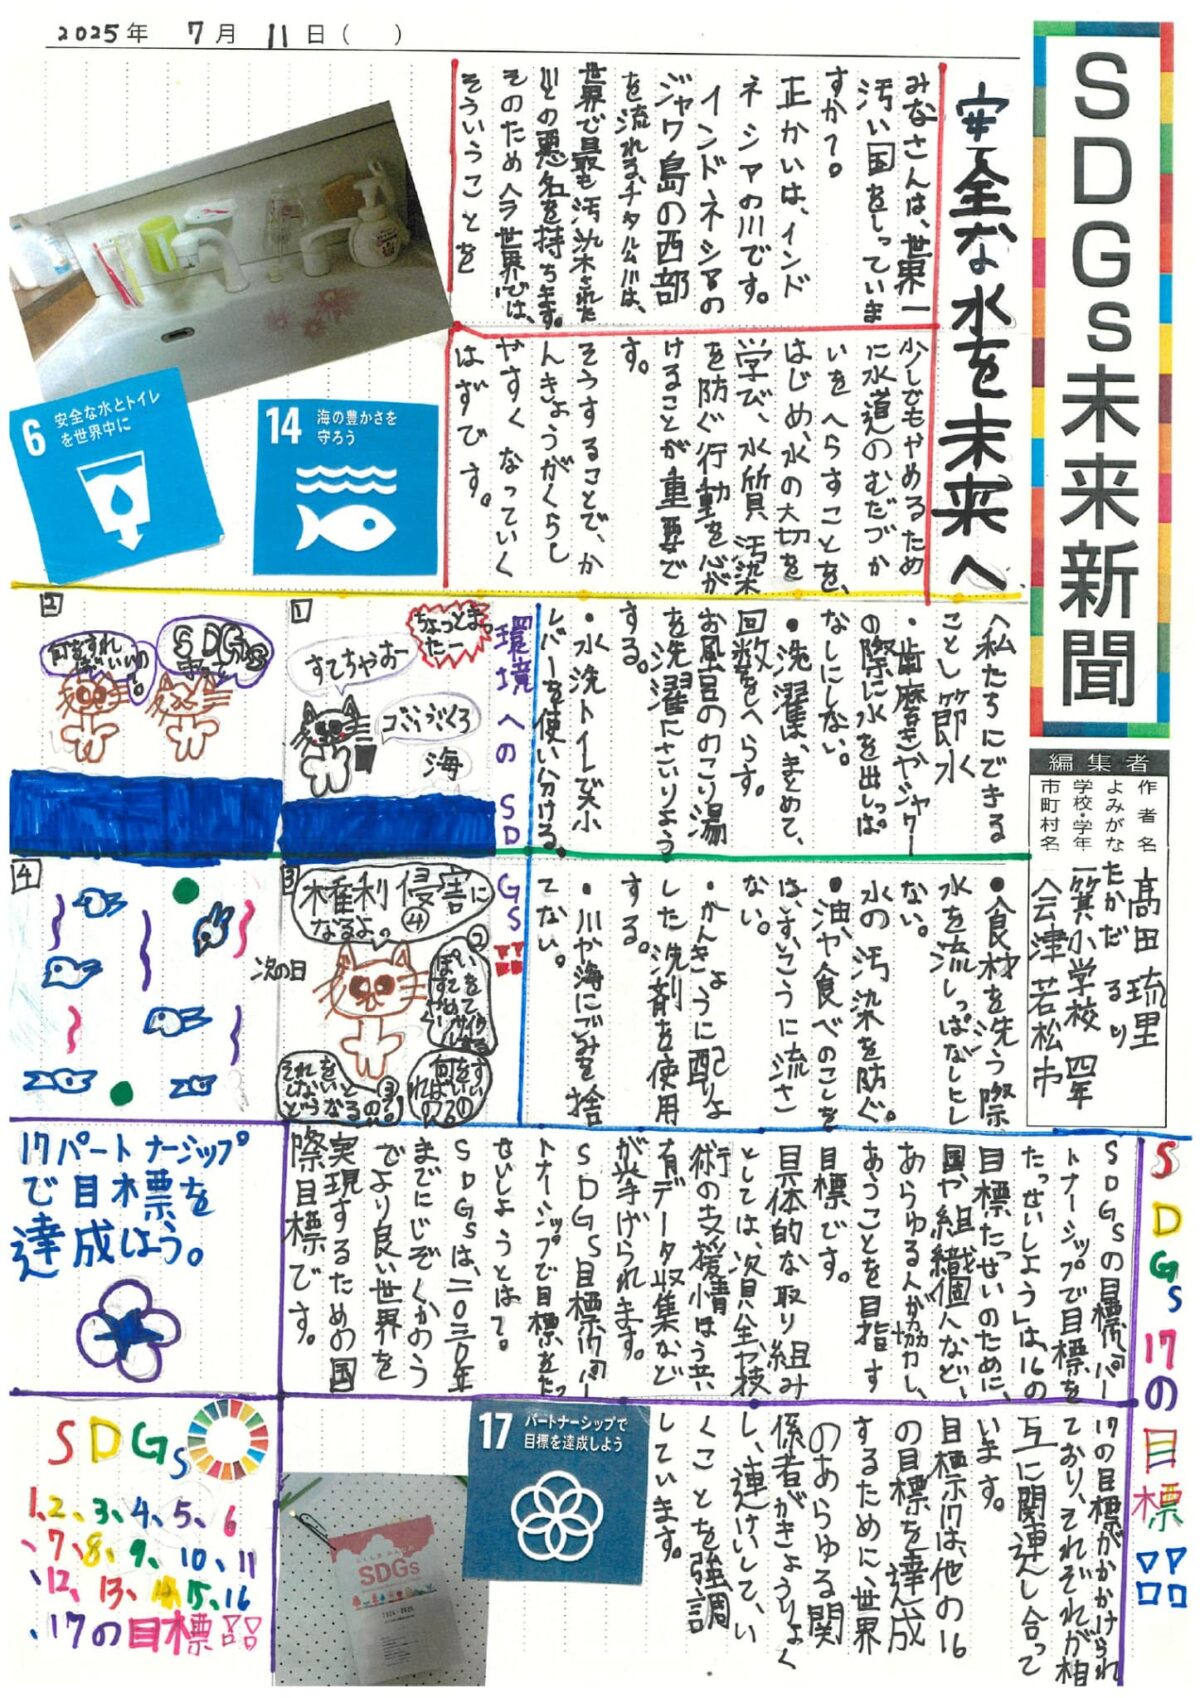 2025年 7月 11日( )
SDGs未来新聞
編集者
作者名
よみがな
学校・学年
市町村名
髙田 琉里
たかだ るり
一箕小学校 四年
会津若松市
安全な水を未来へ
みなさんは、世界一
汚い国をしっていま
すかて。
正かいは、インド
ネシアの川です。
インドネシアの
ジャワ島の西部
を流れる、チタルム川は、
世界で最も汚染された
川との悪名を持ちます。
そのため今世界では、
そういうことを
少しでもやめるため
に水道のむだづか
いをへらすことを、
はじめ、水の大切を
学び、水質汚染
を防ぐ行動を心が
けることが重要で
す。
そうすることで、か
んきょうがくらし
やすくなっていく
はずです。
6 安全な水とトイレ
を世界中に
14 海の豊かさを
守ろう
〈私たちにできる
こと〉節水
・歯磨きやシャワー
の際に水を出しっぱ
なしにしない。
・洗濯は、まとめて、
回数をへらす。
お風呂ののこり湯
を洗濯にさいりよう
する。
・水洗トイレで大小
レバーを使い分ける。
・食材を洗う際、
水を流しっぱなしとし
ない。
水の汚染を防ぐ。
・油や食べのこしを
は、すいこうに流さ
ない。
・かんきょうに配りよ
した洗剤を使用
する。
・川や海にごみを捨
てない。
環境へのSDGs
1
ちょっとま。
たー
すてちゃおー
海
2
SDGs
何をすれ
ばいいの
3
権利侵害に
なるよ。
④
②
①
③
次の日
4
SDGs 17の目標
SDGsの目標17「パー
トナーシップで目標を
たっせいしよう」は、16の
目標たっせいのために、
国や組織個人など、
あらゆる人が協力し、
あうことを目指す
目標です。
具体的な取り組み
としては、資金や技
術の支援情ほう共
有データ収集など
が挙げられます。
SDGS目標17「パー
トナーシップで目標をたっ
せいしようとは?
SDGsは、二〇三〇年
までにじぞくかのう
でより良い世界を
実現するための国
際目標です。
17の目標がかかげられ
ており、それぞれが相
互に関連し合って
います。
目標17は、他の16
の目標を達成
するために、世界
のあらゆる関
係者がきょうりょく
し、連けいして、い
くことを強調
しています。
17パートナーシップ
で目標を
達成しよう。
17 パートナーシップで
目標を達成しよう
SDGs
SDGs
1、2、3、4、5、6
、7、8、9、10、11
、12、13、14、15、16
、17の目標